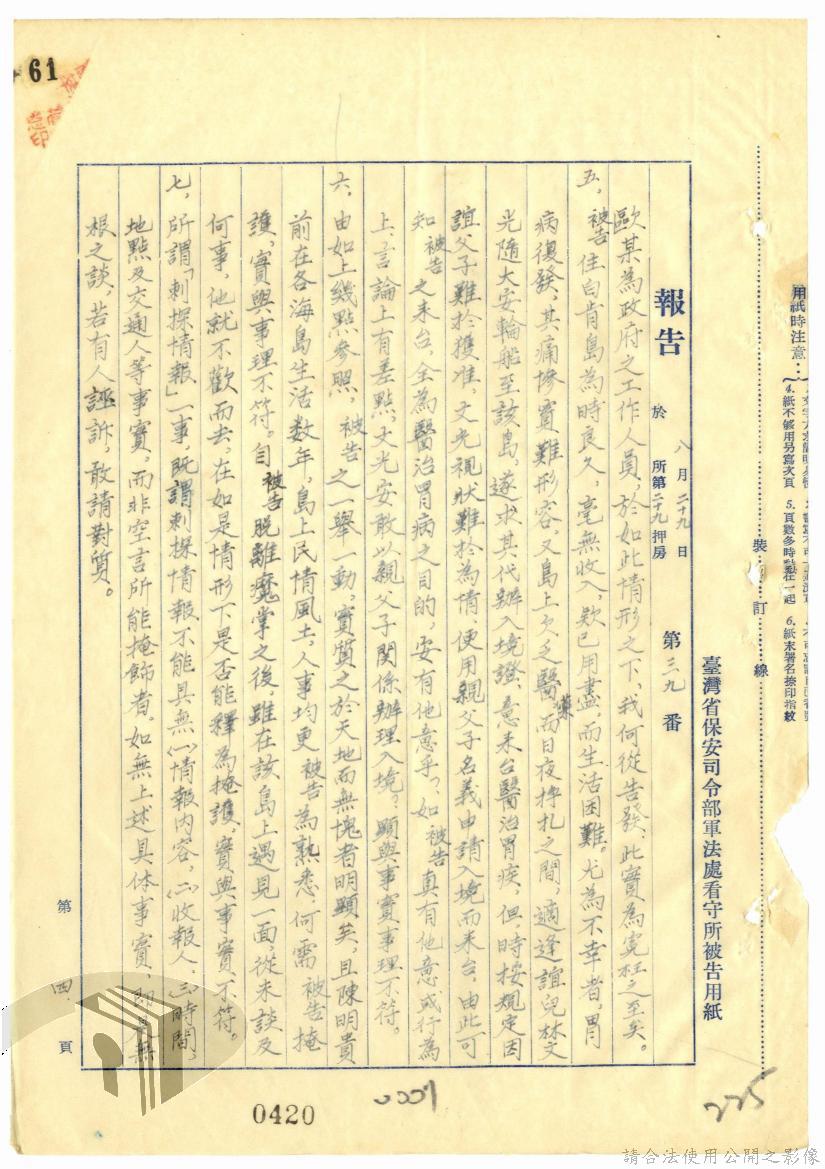 用紙時注意：
4.紙不够用另寫次頁
5.頁數多時點在一起
6.紙末署名捺印指紋
裝訂線
臺灣省保安司令部軍法處看守所被告用紙
報告 於 八月二十九日 所第二十九押房 第三九番
歐某為政府之工作人員，於如此情形之下，我何從告發，此實為寃枉之至矣。
五，被告住白肯島為時良久，毫無收入，欵已用盡，而生活困難。尤為不幸者，胃
病復發，其痛慘實難形容，又島上欠乏醫藥，而日夜掙扎之間，適逢誼兒林文
光隨大安輪船至該島，遂求其代辦入境證，意來台醫治胃疾，但，時按規定因
誼父子難於獲准，文光視狀難於為情，便用親父子名義申請入境而來台，由此可
知，被告之來台，全為醫治胃病之目的，安有他意乎，如被告真有他意或行為
上，言論上有差點，文光安敢以親父子關係辦理入境？顯與事實事理不符。
六，由如上幾點參照，被告之一舉一動，實質之於天地而無愧者明顯矣，且陳明貴
前在各海島生活数年，島上民情風土，人事均更被告為熟悉，何需被告掩
護，實與事理不符。自被告脱離魔掌之後，雖在該島上遇見一面，從未談及
何事，他就不歡而去，在如是情形下是否能釋為掩護，實與事實不符。
七，所謂「刺探情報」一事，既謂刺探情報不能具無㈠情報内容，㈡收報人，㈢時間，
地點及交通人等事實，而非空言所能掩飾者。如無上述具体事實，即是無
根之談，若有人誣訴，敢請對質。
第四頁
61
0420
225
請合法使用公開之影像